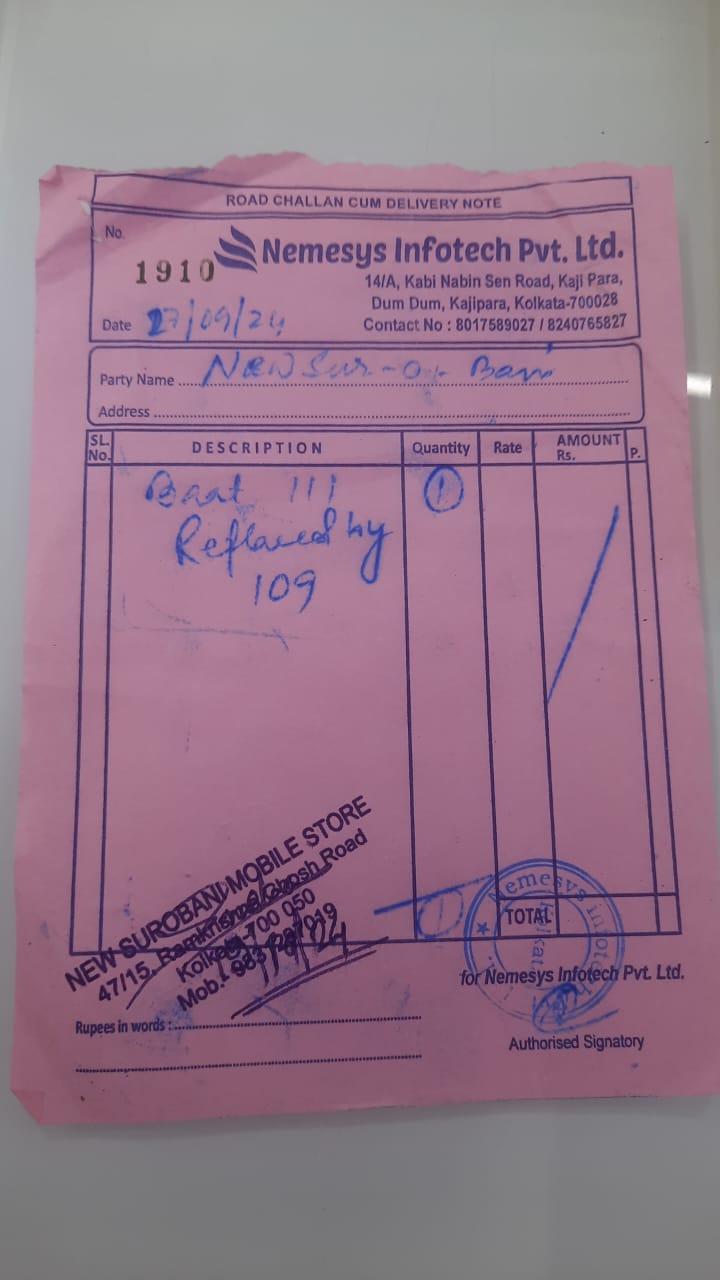 ROAD CHALLAN CUM DELIVERY NOTE
No.
1910
Nemesys Infotech Pvt. Ltd.
14/A, Kabi Nabin Sen Road, Kaji Para,
Dum Dum, Kajipara, Kolkata-700028
Date 27/09/24
Contact No : 8017589027 / 8240765827
Party Name New Sur-o-Bani
Address
SL. No. DESCRIPTION Quantity Rate AMOUNT Rs. P.
Boat 111 1
Replaced by
109
NEW SUROBANI MOBILE STORE
47/15, Ramkrishna Ghosh Road
Kolkata-700 050
Mob.-
1
TOTAL
Nemesys Infotech
for Nemesys Infotech Pvt. Ltd.
Rupees in words :
Authorised Signatory